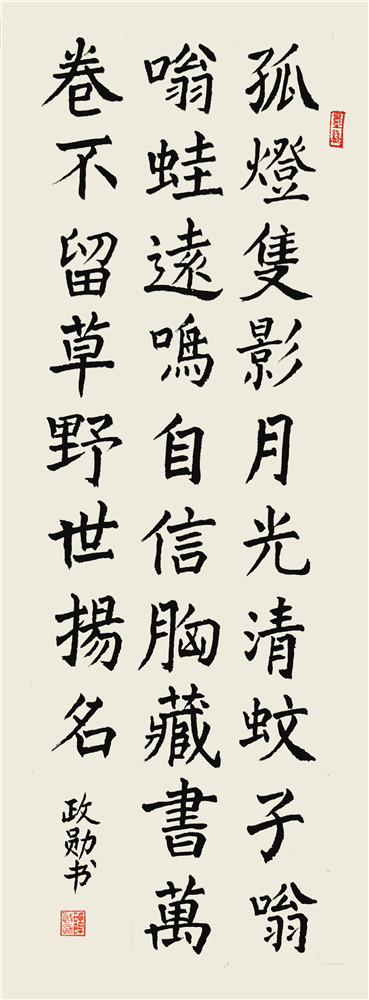 孤燈隻影月光清蚊子嗡
嗡蛙遠鳴自信胸藏書萬
卷不留草野世揚名
政勋书